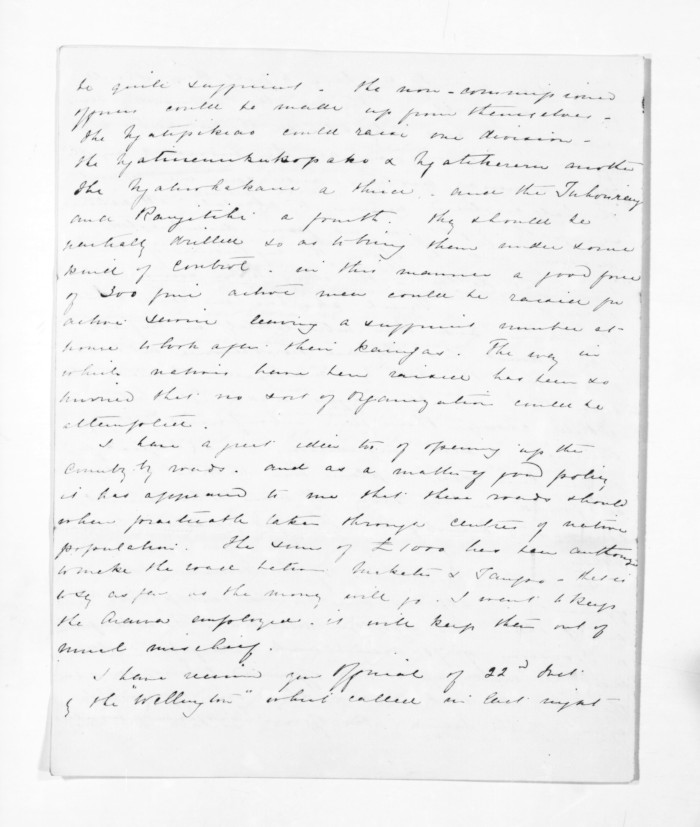 be quite sufficient - the non-commissioned
officers could be made up from themselves -
the Ngatipikiao could raise one division -
the & another
the a third - and the Tuhourangi
and Rangitihi a fourth. They should be
partially drilled so as to bring them under some
kind of control. in this manner a good force
of 300 fine active men could be raised for
active service leaving a sufficient number at
home to look after their kaingas. The way in
which natives have been raised has been so
hurried that no sort of organization could be
attempted.
I have a great idea too of opening up the
Country by roads. and as a matter of good policy
it has appeared to me that these roads should
when practicable taken through centres of native
population. The sum of £1000 has been authorized
to make the road between Maketu & - that is
to say as far as the money will go. I want to keep
the Arawa employed. it will keep them out of
much mischief.
I have received your Official of 22d Inst
by the "Wellington" which called in last night